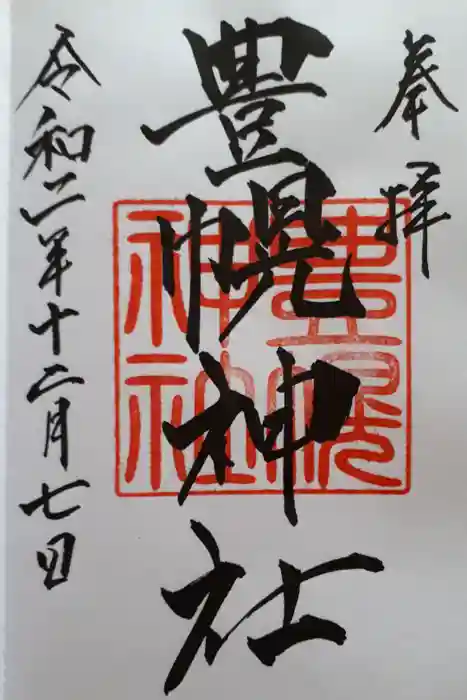 奉拝
豊幌神社
令和二年十二月七日
豊幌神社